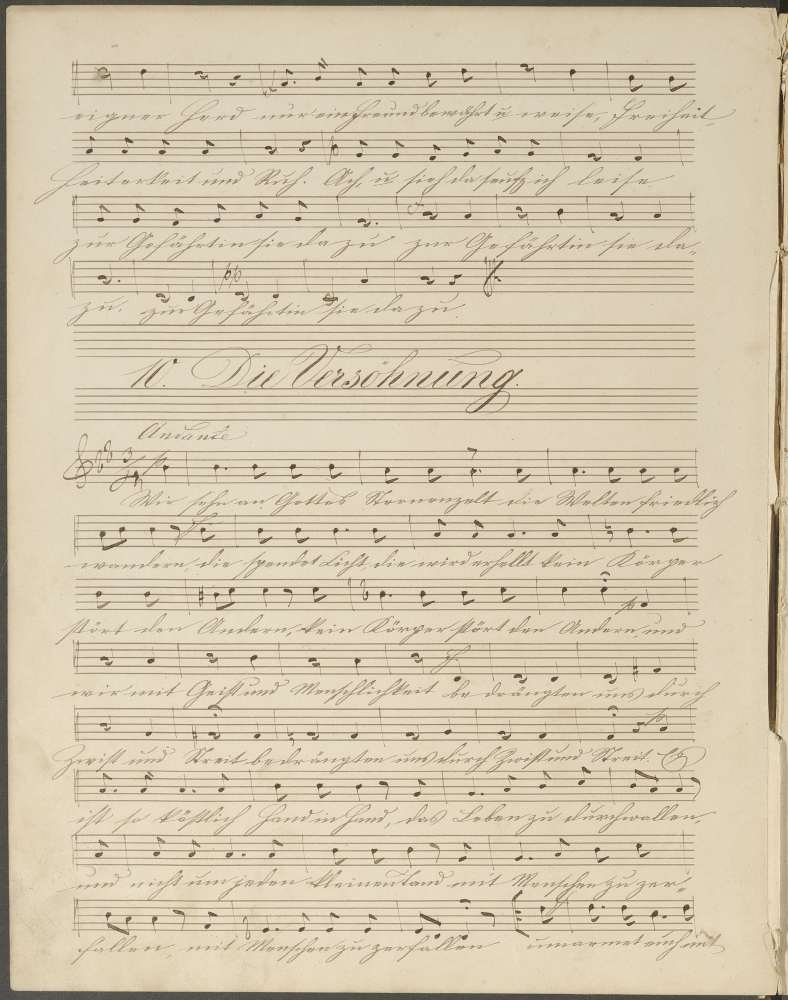 eigner Herd nur ein Freund bewährt u weise, Freiheit
Heiterkeit und Ruh. Ach, u sieh da seufz ich leise
zur Gefährtin sie dazu zur Gefährtin sie da-
zu. zur Gefährtin sie dazu.
10. Die Versöhnung.
Andante
Wir sehn an Gottes Sternenzelt die Welten friedlich
wandern, die spendet Licht, die wird erhellt kein Körper
stört den Andern, kein Körper stört den Andern, und
wir mit Geist und Menschlichkeit bedrängten uns durch
Zwist und Streit bedrängten uns durch Zwist und Streit. Es
ist so köstlich Hand in Hand, das Leben zu durchwallen
und nicht um jeden kleinen Tand mit Menschen zu zer-
fallen, mit Menschen zu zerfallen umarmet euch mit